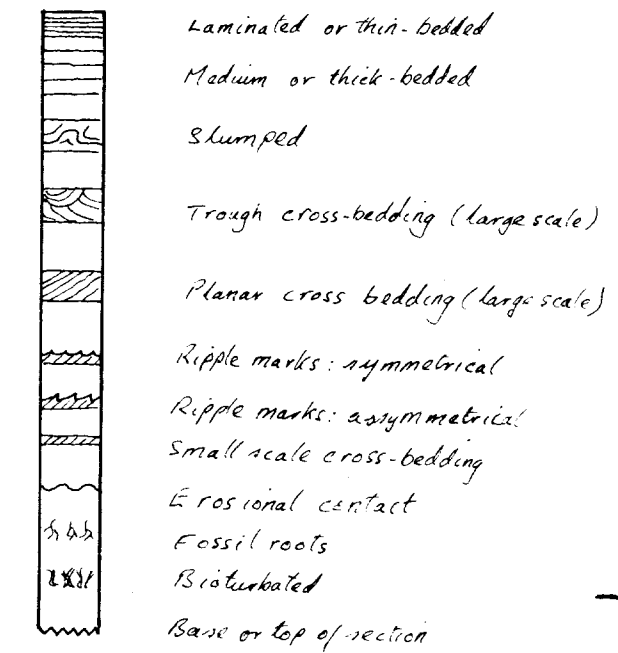 Laminated or thin-bedded
Medium or thick-bedded
Slumped
Trough cross-bedding (large scale)
Planar cross bedding (large scale)
Ripple marks: symmetrical
Ripple marks: assymmetrical
Small scale cross-bedding
Erosional contact
Fossil roots
Bioturbated
Base or top of section